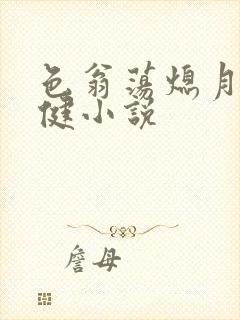 色翁荡熄月
健小说
詹母